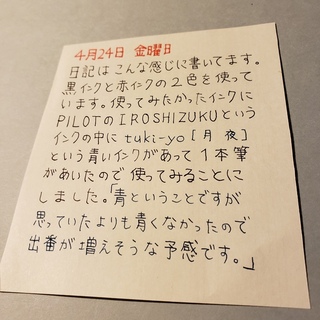 4月24日 金曜日
日記はこんな感じに書いてます。
黒インクと赤インクの2色を使って
います。使ってみたかったインクに
PILOTのIROSHIZUKUという
インクの中にtuki-yo[月夜]
という青いインクがあって1本筆
があいたので使ってみることに
しました。「青ということですが
思っていたよりも青くなかったので
出番が増えそうな予感です。」